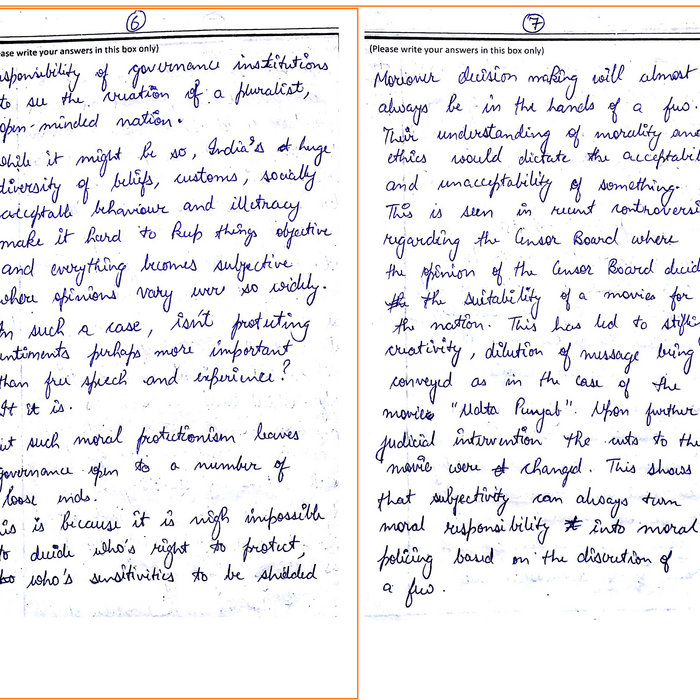 6
ease write your answers in this box only)
sponsibility of governance institutions
to see the creation of a pluralist,
open-minded nation.
while it might be so, India's huge
diversity of beliefs, customs, socially
acceptable behaviour and illetracy
make it hard to keep things objective
and everything becomes subjective
where opinions vary ever so widely.
In such a case, isn't protecting
entiments perhaps more important
than free speech and experience?
It is.
ut such moral protectionism leaves
governance open to a number of
loose ends.
is is because it is nigh impossible
to decide who's right to protect,
who's sensitivities to be shielded
7
(Please write your answers in this box only)
Moreover decision making will almost
always be in the hands of a few.
Their understanding of morality and
ethics would dictate the acceptabil
and unacceptability of something.
This is seen in recent controversi
regarding the Censor Board where
the opinion of the Censor Board decid
the suitability of a movies for
the nation. This has led to stifli
creativity, dilution of message being
conveyed as in the case of the
movie "Udta Punjab". Upon further
judicial intervention the cuts to the
movie were changed. This shows
that subjectivity can always turn
moral responsibility into moral
policing based on the discretion of
a few.